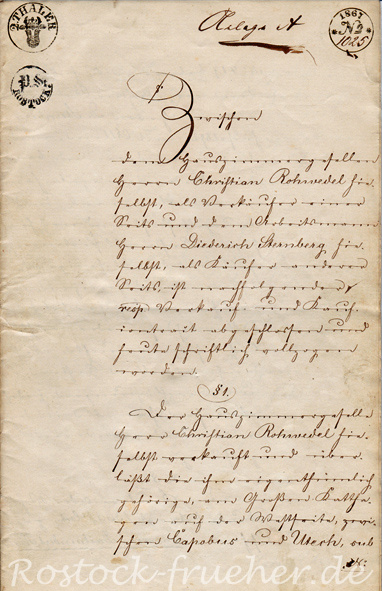 2. THALER
Beilage A
1867
No
1025
P. S.
ROSTOCK
Zwischen
dem Hauszimmergesellen
Herrn Christian Rohwedel hie-
selbst, als Verkäufer einer
Seits und dem Arbeitsmann
Herrn Diederich Sternberg hie-
selbst, als Käufer anderer
Seits ist nachfolgender
resp Verkauf- und Kauf-
contract abgeschlossen und
heute schriftlich vollzogen
worden.
§ 1.
Der Hauszimmergeselle
Herr Christian Rohwedel hie-
selbst verkauft und über-
läßt die ihm eigenthümlich
gehörige, am Großen Kattha-
gen auf der Westseite, zwi-
schen Capobus und Utech, sub
Rostock-frueher.de